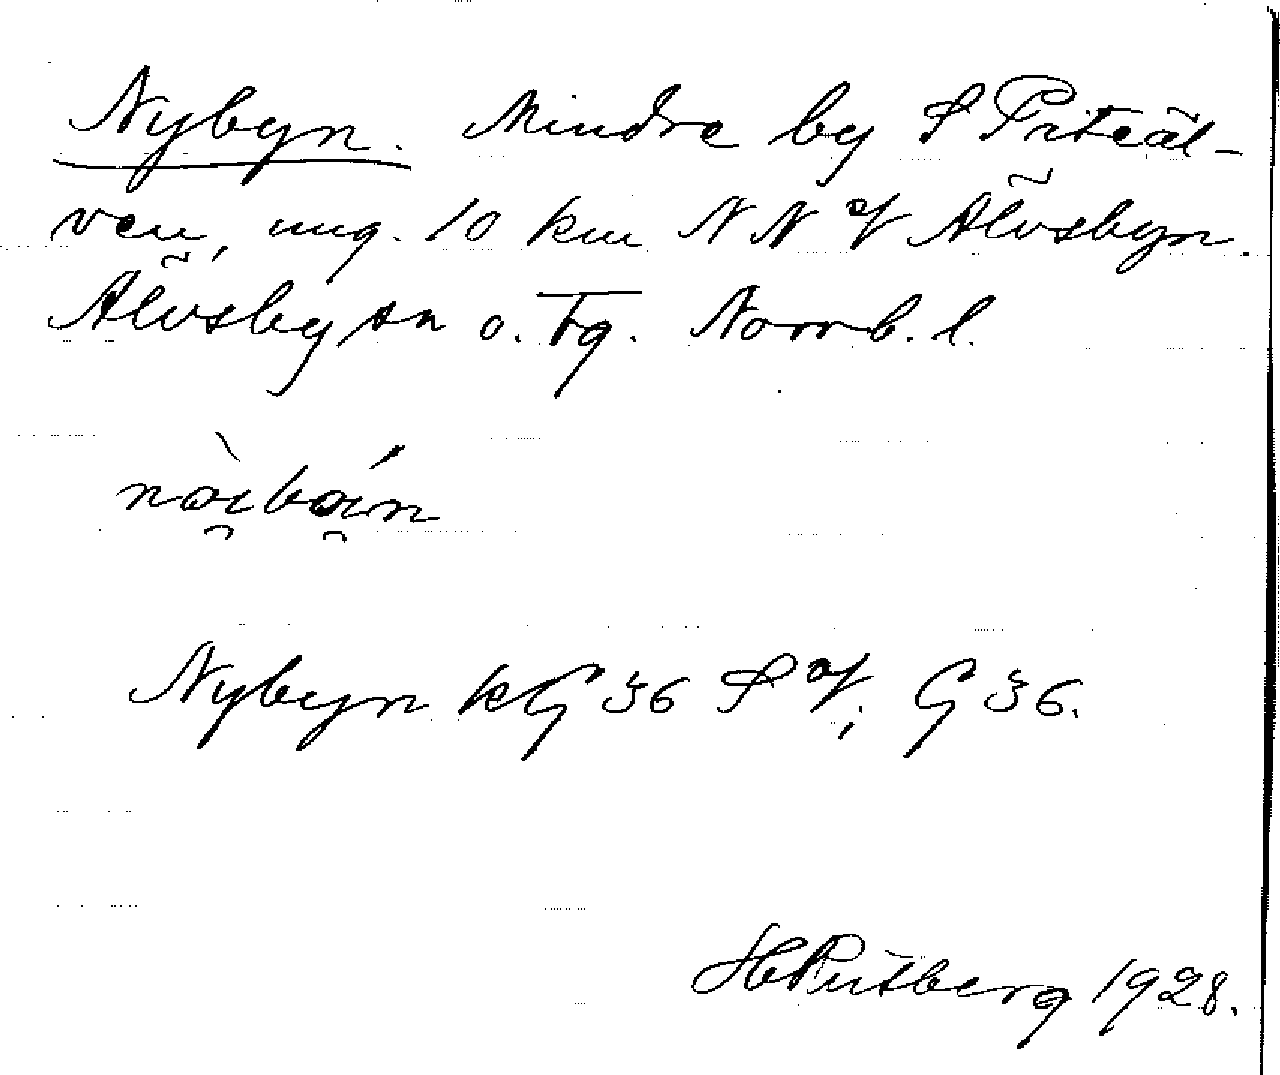 Nybyn. Mindre by S Piteäl-
ven, ung. 10 km NN of Älvsbyn.
Älvsby sn o. Tg. Norrb. l.
nòibáin
Nybyn kG 36 S of; G 36.
H Rutberg 1928.